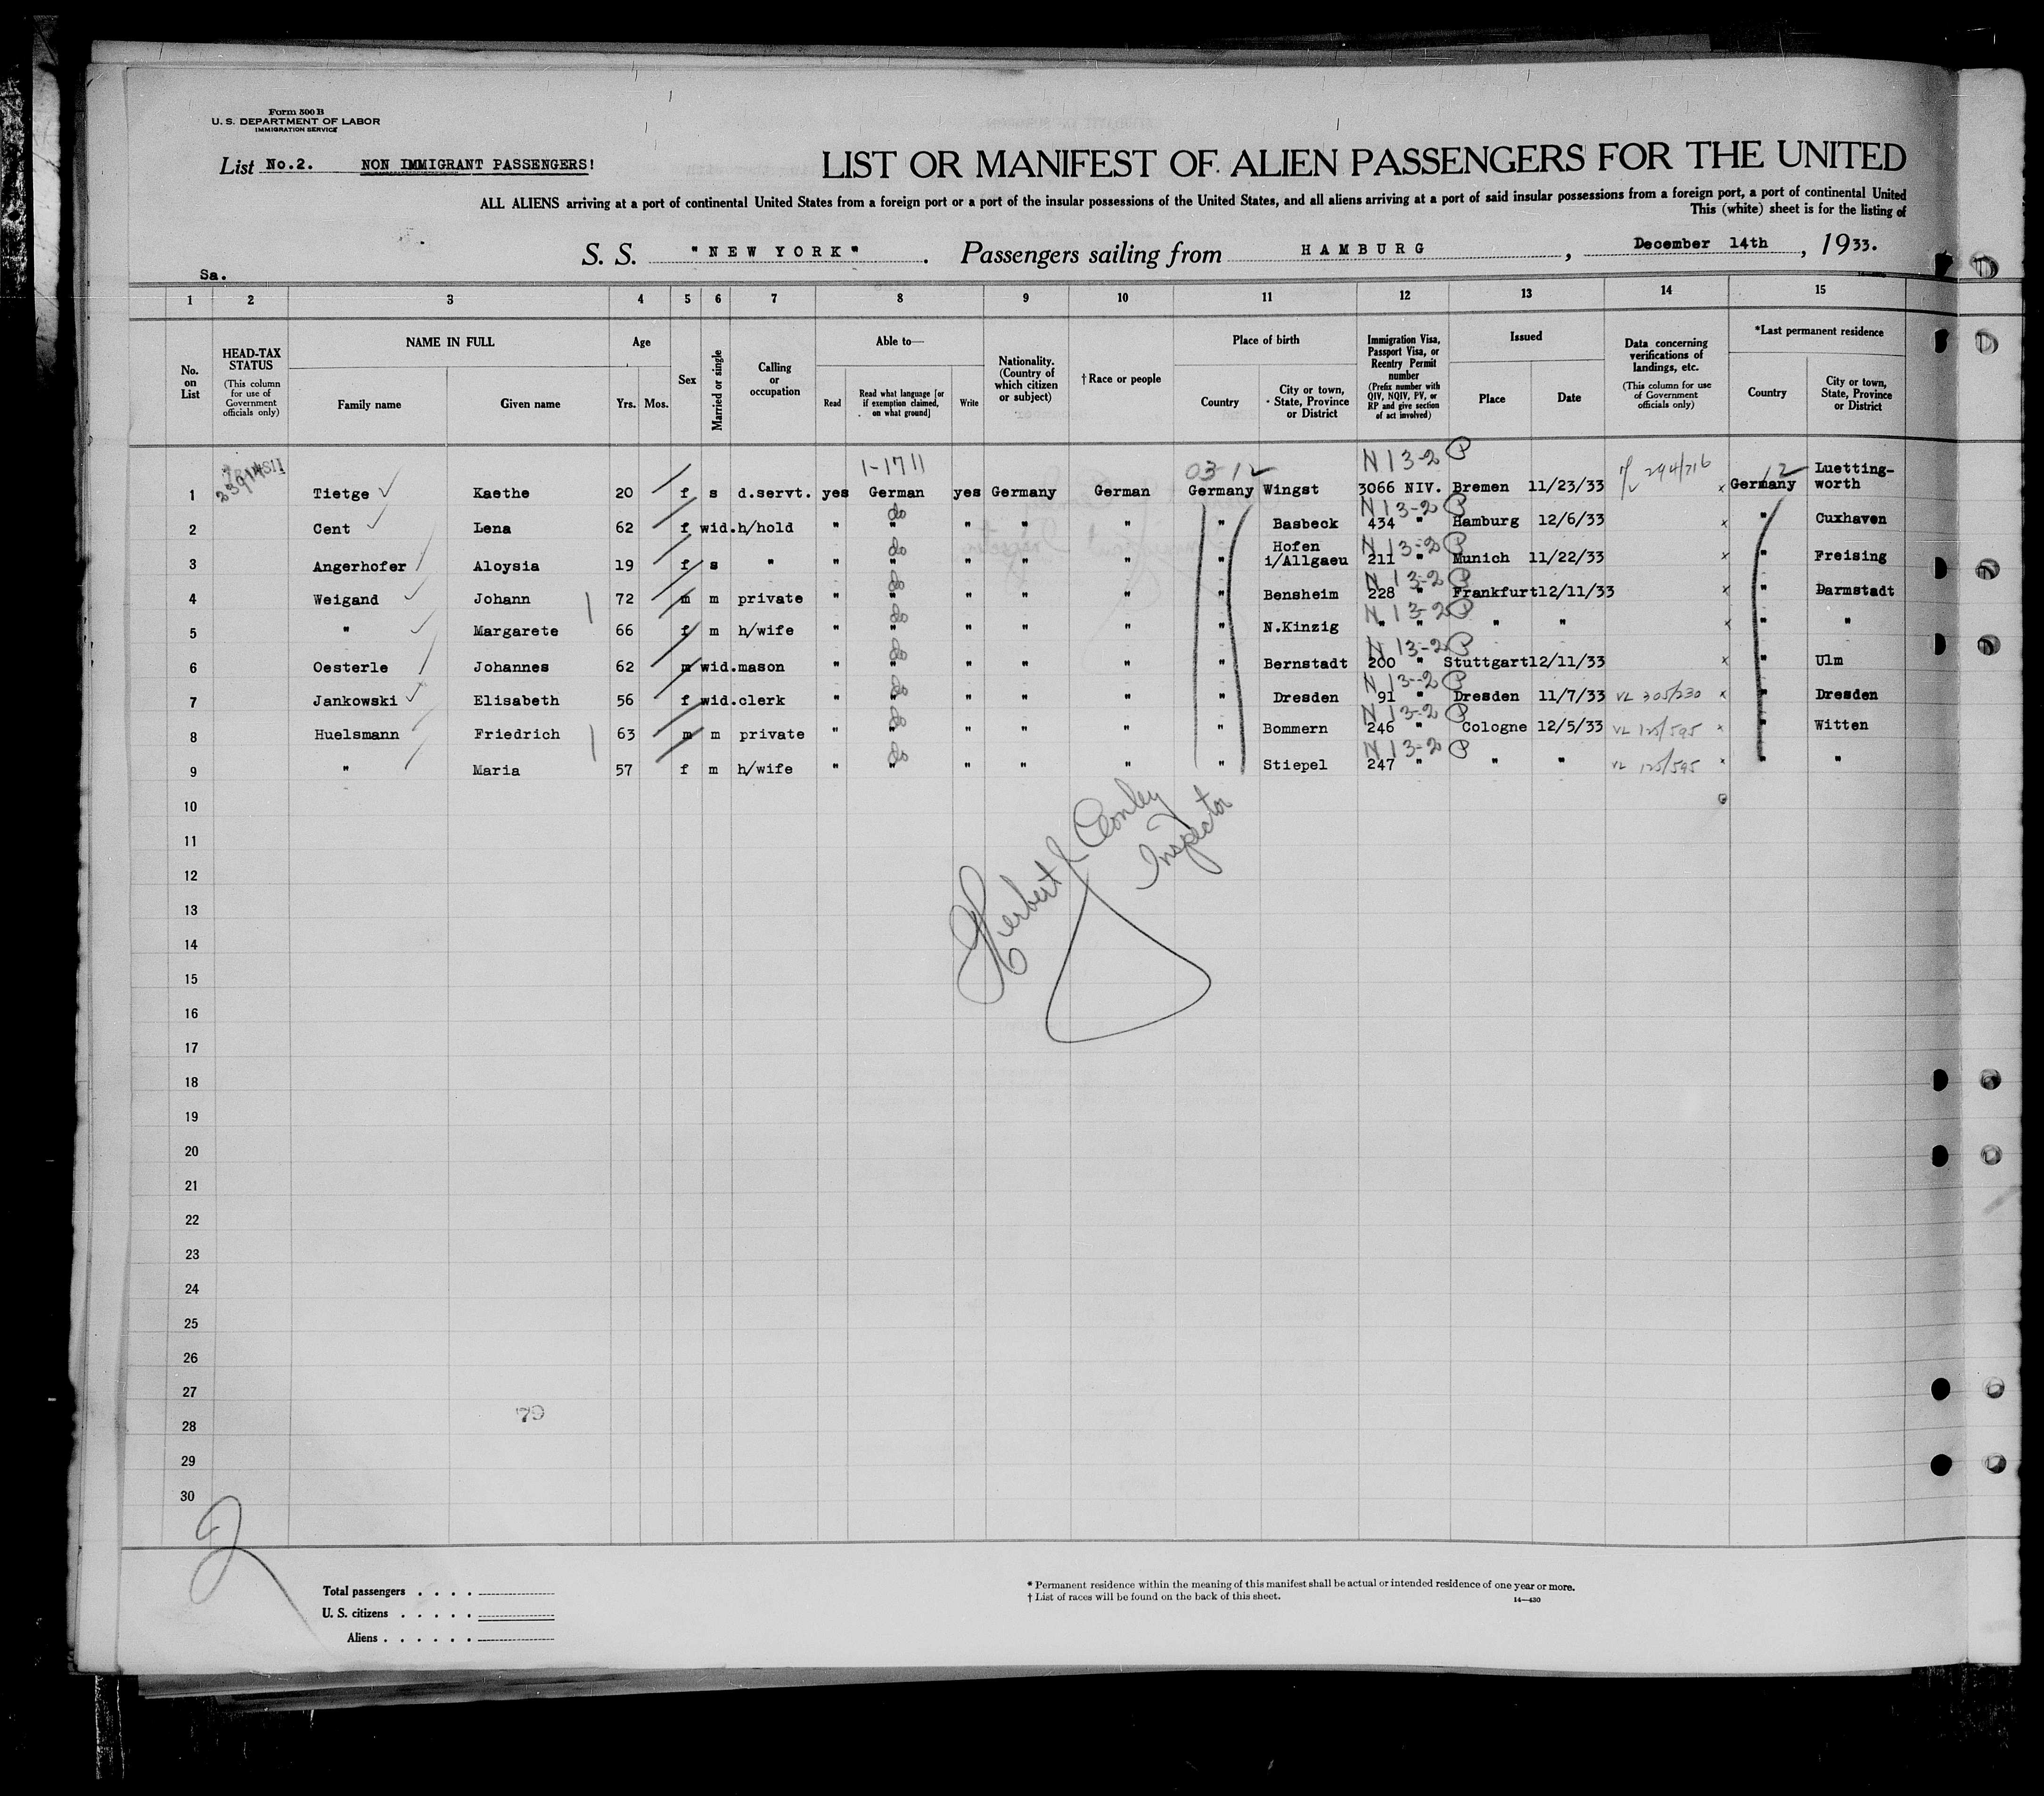 Form 500 B
U. S. DEPARTMENT OF LABOR
IMMIGRATION SERVICE
List No.2. NON IMMIGRANT PASSENGERS!
LIST OR MANIFEST OF ALIEN PASSENGERS FOR THE UNITED
ALL ALIENS arriving at a port of continental United States from a foreign port or a port of the insular possessions of the United States, and all aliens arriving at a port of said insular possessions from a foreign port, a port of continental United
This (white) sheet is for the listing of
S. S. "NEW YORK". Passengers sailing from HAMBURG, December 14th, 1933.
Sa.
1 2 3 4 5 6 7 8 9 10 11 12 13 14 15
No. on List
HEAD-TAX STATUS
(This column for use of Government officials only)
NAME IN FULL
Family name
Given name
Age
Yrs. Mos.
Sex
Married or single
Calling or occupation
Able to—
Read
Read what language [or if exemption claimed, on what ground]
Write
Nationality. (Country of which citizen or subject)
† Race or people
Place of birth
Country
City or town, State, Province or District
Immigration Visa, Passport Visa, or Reentry Permit number
(Prefix number with QIV, NQIV, PV, or RP and give section of act involved)
Issued
Place
Date
Data concerning verifications of landings, etc.
(This column for use of Government officials only)
*Last permanent residence
Country
City or town, State, Province or District
TRANSIT 1-1711 03-12 N 13-2 P 294/716 12 Luetting-
1 Tietge Kaethe 20 f s d.servt. yes German yes Germany German Germany Wingst 3066 NIV. Bremen 11/23/33 x Germany worth
N 13-2 P
2 Cent Lena 62 f wid. h/hold " " " " " " Basbeck 434 " Hamburg 12/6/33 x " Cuxhaven
Hofen N 13-2 P
3 Angerhofer Aloysia 19 f s " " " " " " " i/Allgaeu 211 " Munich 11/22/33 x " Freising
N 13-2 P
4 Weigand Johann 72 m m private " " " " " " Bensheim 228 " Frankfurt 12/11/33 x " Darmstadt
N 13-2 P
5 " Margarete 66 f m h/wife " " " " " " N.Kinzig " " " " x " "
N 13-2 P
6 Oesterle Johannes 62 m wid. mason " " " " " " Bernstadt 200 " Stuttgart 12/11/33 x " Ulm
N 13-2 P
7 Jankowski Elisabeth 56 f wid. clerk " " " " " " Dresden 91 " Dresden 11/7/33 VL 305/230 x " Dresden
N 13-2 P
8 Huelsmann Friedrich 63 m m private " " " " " " Bommern 246 " Cologne 12/5/33 VL 125/595 x " Witten
N 13-2 P
9 " Maria 57 f m h/wife " " " " " " Stiepel 247 " " " VL 125/595 x " "
10
11
12
13
14
15
16
17
18
19
20
21
22
23
24
25
26
27
28
29
30
Herbert J Conley
Inspector
79
2
Total passengers
U. S. citizens
Aliens
* Permanent residence within the meaning of this manifest shall be actual or intended residence of one year or more.
† List of races will be found on the back of this sheet.
14—430